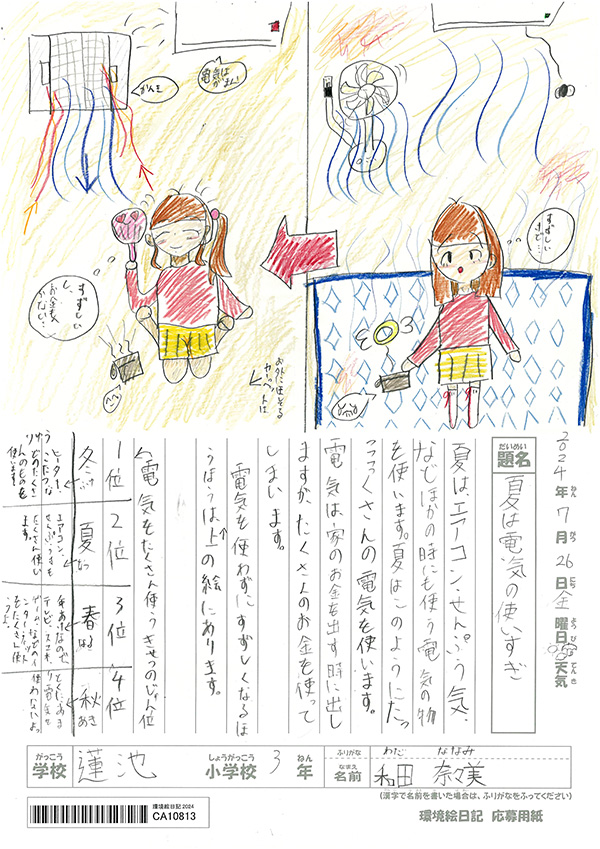 電気は
がまん！
かんき
すずしい
けど…
すずしい
し、
お金も
へらない…
お外にほしてる
カーペットは
2024年7月26日金曜日
ねん
にち
ようび
天気
てんき
だいめい
題名
夏は電気の使いすぎ
夏は、エアコン・せんぷう気・
などほかの時にも使う電気の物
を使います。夏はこのようにたっ
くさんの電気を使います。
電気は、家のお金を出す時に出し
ますが、たくさんのお金を使って
しまいます。
電気を使わずにすずしくなるほ
うほうは、上の絵にあります。
電気をたくさん使うきせつのじゅん位
1位
2位
3位
4位
冬
ふゆ
夏
なつ
春
はる
秋
あき
ヒーター、
こたつな
どのたくさ
んのものを
使います！
エアコン、
せんぷうきも
たくさん使い
ます。
がっこう
学校
蓮池
しょうがっこう
小学校
3
ねん
年
ふりがな
わだ ななみ
なまえ
名前
和田 奈々美
(漢字で名前を書いた場合は、ふりがなをふってください)
環境絵日記2024
CA10813
環境絵日記 応募用紙